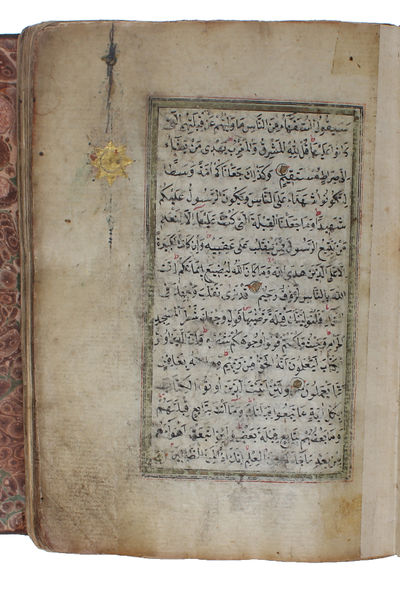 سَيَقُولُ السُّفَهَاءُ مِنَ النَّاسِ مَا وَلّٰيهُمْ عَنْ قِبْلَتِهِمُ الَّتِي
كَانُوا عَلَيْهَا قُلْ لِلّٰهِ الْمَشْرِقُ وَالْمَغْرِبُ يَهْدِي مَنْ يَشَاءُ
اِلٰى صِرَاطٍ مُسْتَقِيمٍ وَكَذٰلِكَ جَعَلْنَاكُمْ اُمَّةً وَسَطًا
لِتَكُونُوا شُهَدَاءَ عَلَى النَّاسِ وَيَكُونَ الرَّسُولُ عَلَيْكُمْ
شَهِيدًا وَمَا جَعَلْنَا الْقِبْلَةَ الَّتِي كُنْتَ عَلَيْهَا اِلَّا لِنَعْلَمَ
مَنْ يَتَّبِعُ الرَّسُولَ مِمَّنْ يَنْقَلِبُ عَلٰى عَقِبَيْهِ وَاِنْ كَانَتْ لَكَبِيرَةً
اِلَّا عَلَى الَّذِينَ هَدَى اللّٰهُ وَمَا كَانَ اللّٰهُ لِيُضِيعَ اِيمَانَكُمْ اِنَّ
اللّٰهَ بِالنَّاسِ لَرَؤُفٌ رَحِيمٌ قَدْ نَرٰى تَقَلُّبَ وَجْهِكَ فِي
السَّمَاءِ فَلَنُوَلِّيَنَّكَ قِبْلَةً تَرْضٰيهَا فَوَلِّ وَجْهَكَ شَطْرَ الْمَسْجِدِ
الْحَرَامِ وَحَيْثُ مَا كُنْتُمْ فَوَلُّوا وُجُوهَكُمْ شَطْرَهُ
الْكِتَابَ لَيَعْلَمُونَ اَنَّهُ الْحَقُّ مِنْ رَبِّهِمْ وَمَا اللّٰهُ بِغَافِلٍ
عَمَّا يَعْمَلُونَ وَلَئِنْ اَتَيْتَ الَّذِينَ اُوتُوا الْكِتَابَ
بِكُلِّ اٰيَةٍ مَا تَبِعُوا قِبْلَتَكَ وَمَا اَنْتَ بِتَابِعٍ قِبْلَتَهُمْ
وَمَا بَعْضُهُمْ بِتَابِعٍ قِبْلَةَ بَعْضٍ وَلَئِنِ اتَّبَعْتَ اَهْوَاءَهُمْ
مِنْ بَعْدِ مَا جَاءَكَ مِنَ الْعِلْمِ اِنَّكَ اِذًا لَمِنَ الظَّالِمِينَ